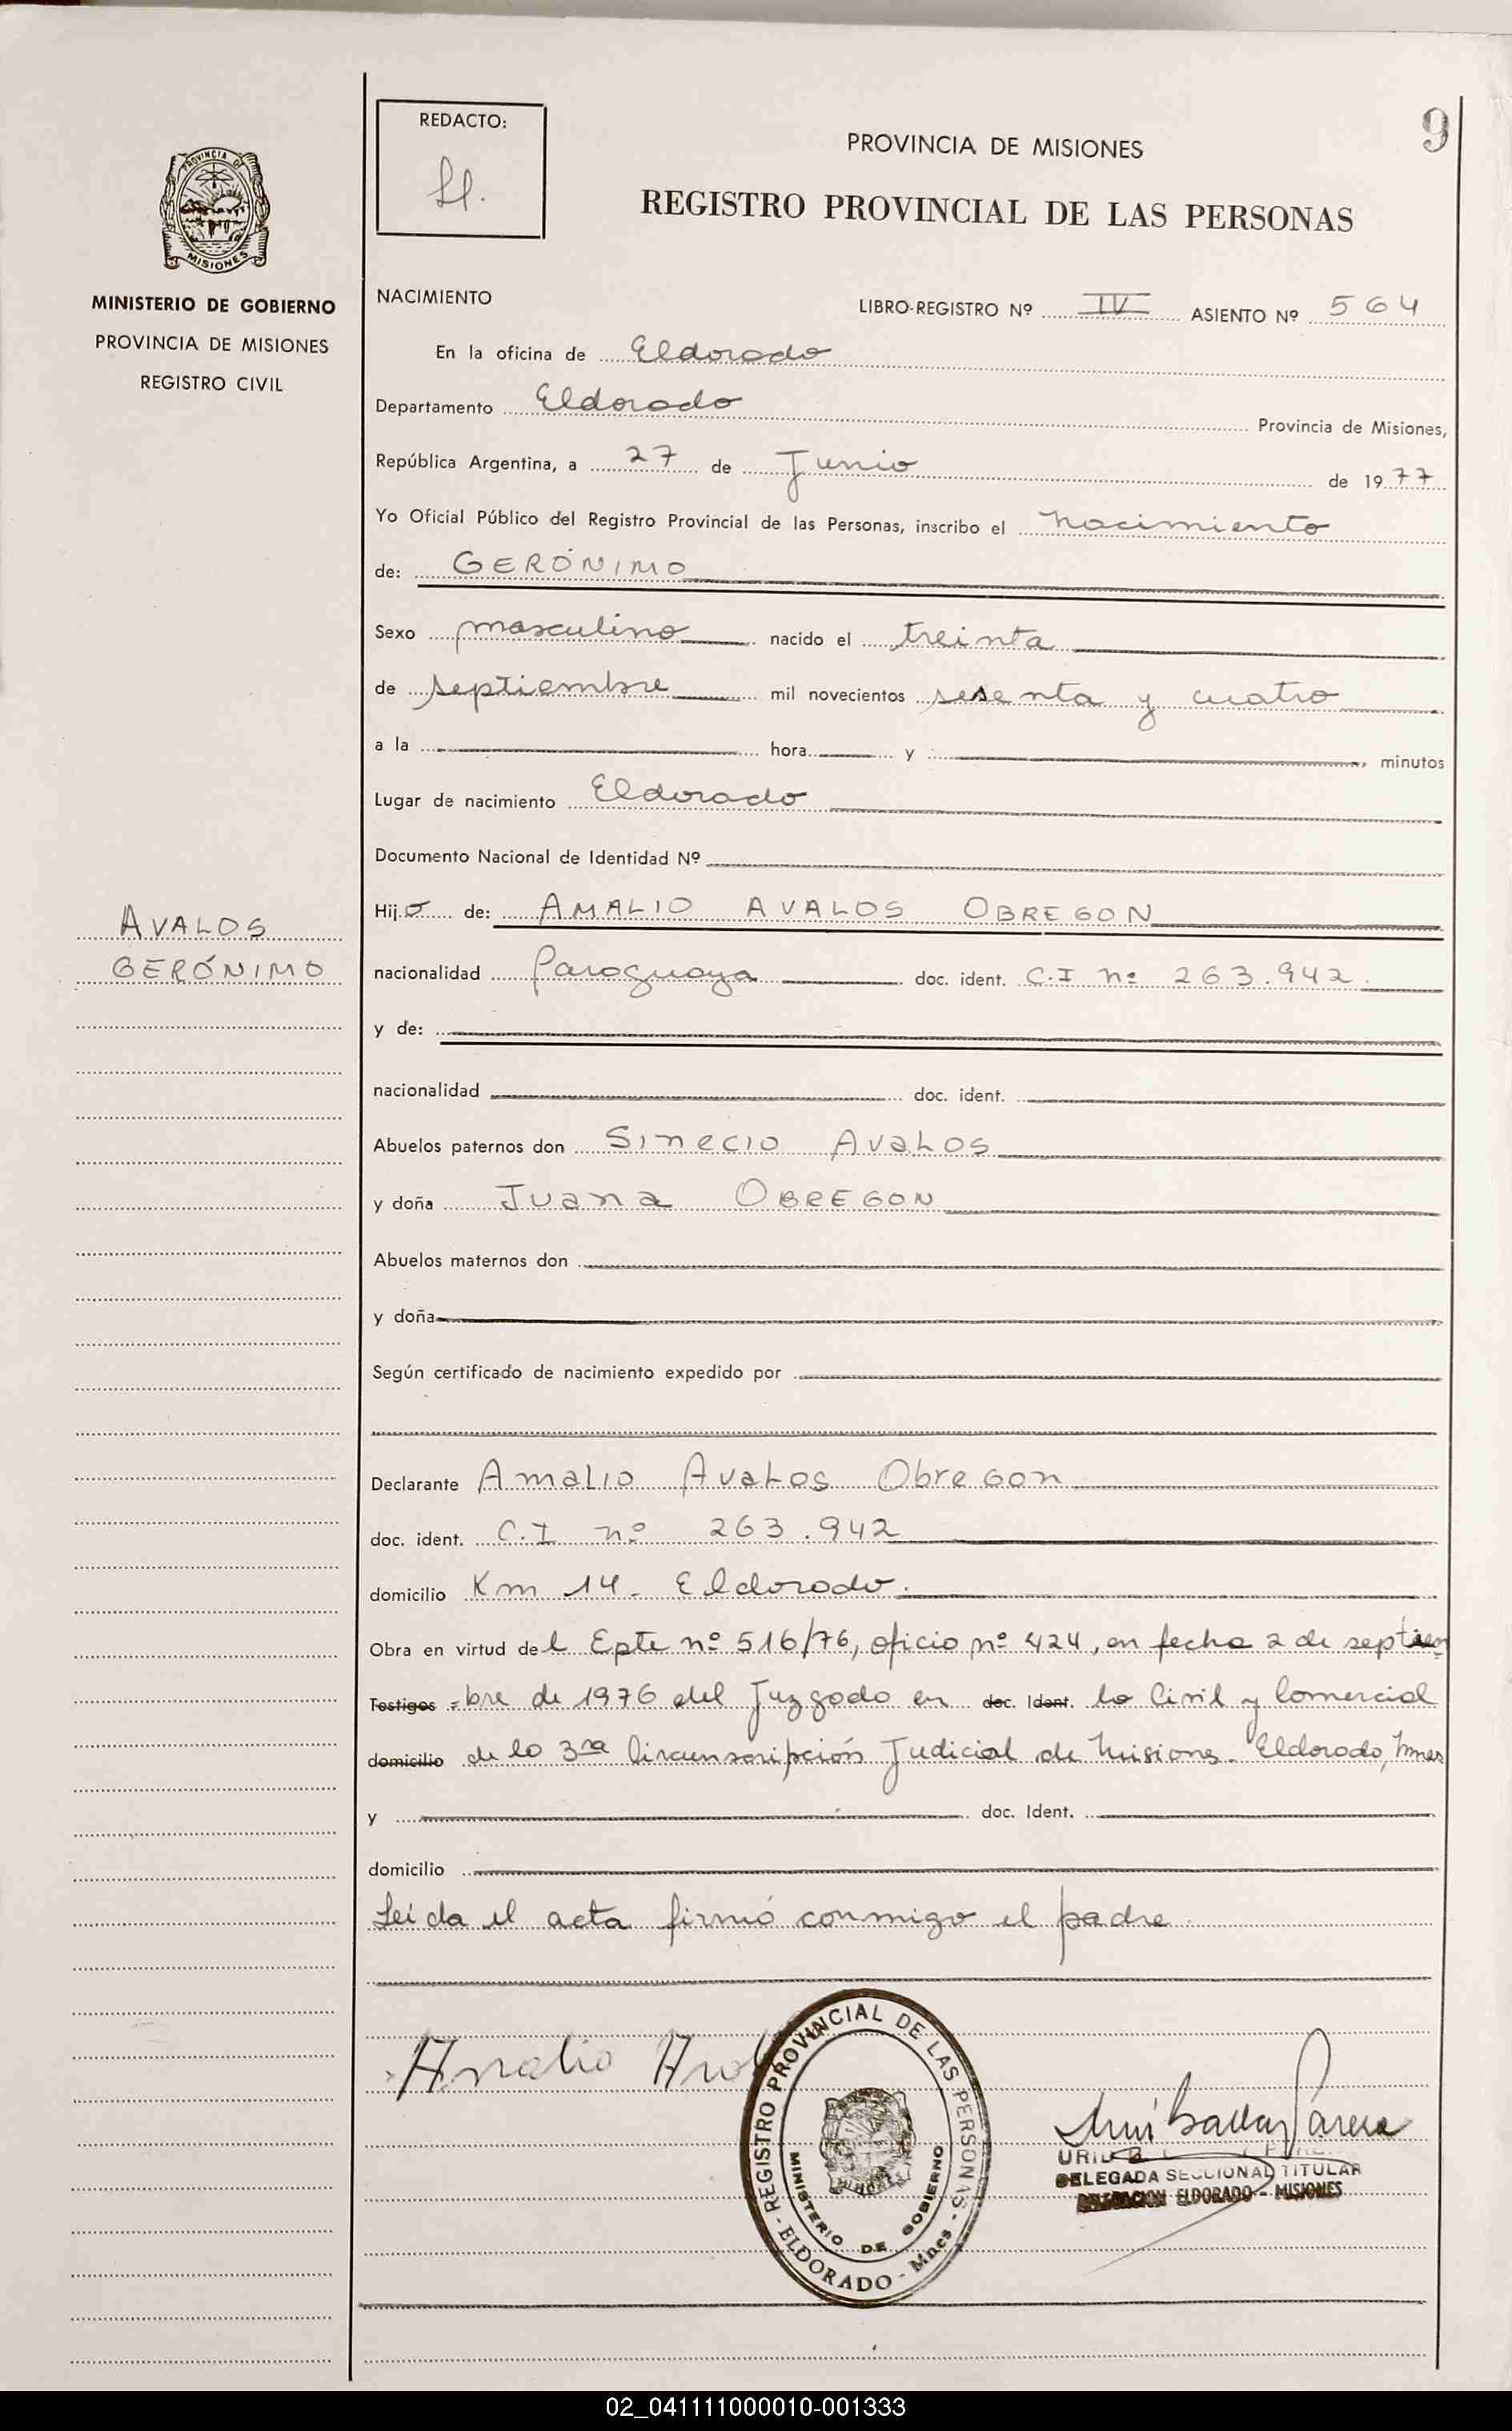 9
REDACTO:
PROVINCIA DE MISIONES
REGISTRO PROVINCIAL DE LAS PERSONAS
PROVINCIA DE
MISIONES
MINISTERIO DE GOBIERNO
PROVINCIA DE MISIONES
REGISTRO CIVIL
NACIMIENTO
LIBRO-REGISTRO Nº IV ASIENTO Nº 564
En la oficina de Eldorado
Departamento Eldorado Provincia de Misiones,
República Argentina, a 27 de Junio de 1977
Yo Oficial Público del Registro Provincial de las Personas, inscribo el nacimiento
de: GERÓNIMO
Sexo masculino nacido el treinta
de septiembre mil novecientos sesenta y cuatro
a la hora y minutos
Lugar de nacimiento Eldorado
Documento Nacional de Identidad Nº
AVALOS
GERÓNIMO
Hijo de: AMALIO AVALOS OBREGON
nacionalidad Paraguaya doc. ident. C.I nº 263.942.
y de:
nacionalidad doc. ident.
Abuelos paternos don Sinecio AVALOS
y doña Juana OBREGON
Abuelos maternos don
y doña
Según certificado de nacimiento expedido por
Declarante Amalio Avalos Obregon
doc. ident. C.I nº 263.942
domicilio Km 14- Eldorado.
Obra en virtud del Epte nº 516/76, oficio nº 424, en fecha 2 de septiem
Testigos =bre de 1976 del Juzgado en doc. Ident. lo Civil y Comercial
domicilio de la 3ra Circunscripción Judicial de Misiones- Eldorado, Mnes
y doc. Ident.
domicilio
Leida el acta firmó conmigo el padre.
Amalio
REGISTRO PROVINCIAL DE LAS PERSONAS - ELDORADO - Mnes -
MINISTERIO DE GOBIERNO
DELEGADA SECCIONAL TITULAR
DELEGACION ELDORADO - MISIONES
02_041111000010-001333